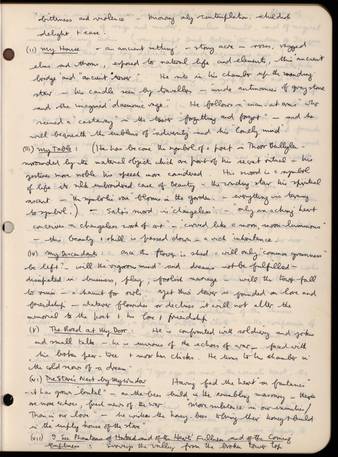 bitterness and violence
delight & ease.
(ii) My House - an ancient setting - stormy acre - roses, ragged
elms and thorn, exposed to natural life and elements, this ancient
bridge and "ancient tower". He sits in his chamber up the winding
stair - his candle seen by travellers
and the imagined daemonic rage. He follows a man at arms who
and forgot - and he
will bequeath the emblems of adversity and his lonely mind
(iii) My Table: (He has become the symbol of a poet in Thoor Ballylee
surrounded by the material objects which are part of his secret ritual - his
gestures more noble his speech more considered. His sword is a symbol
of life its old embroidered case of beauty - the winding stair his spiritual
ascent - the symbolic rose blooms in the garden - everything is trying
to symbol.) - Sato's sword is changeless - only an aching heart
conceives a changeless work of art - curved like a moon, moon-luminous
- this beauty & skill is passed down - a rich inheritance.
(iv) My Descendants: once the flower is shed & will only "common greenness"
be left" - will the "vigorous mind" and dreams not be fulfilled -
dissipated in business, play, foolish marriage - will the tower fall
to ruin - a haunt for owls. Yet this tower is founded on love and
friendship - whatever flourishes or declines it will not alter the
memorial to the poet & his love & friendship.
(v) The Road at My Door: He is confronted with soldiers and jokes
and small talks - he is envious of the actors of war - faced with
his broken pear-tree & moor hen chicks. He turns to his chamber in
the cold snows of a dream
(vi) The Stare's Nest by My Window Having fed the heart on fantasies
- it has grown "brutal" - as the bees build in the crumbling masonry - there
"More substance in our enmities /
Than in our love" - he invites the honey-bees to bring their honey & build
in the empty house of the stare
(vii) I See Phantoms of Hatred and of the Heart's Fullness and of the Coming
Emptiness: Surveys the valley from the broken tower top